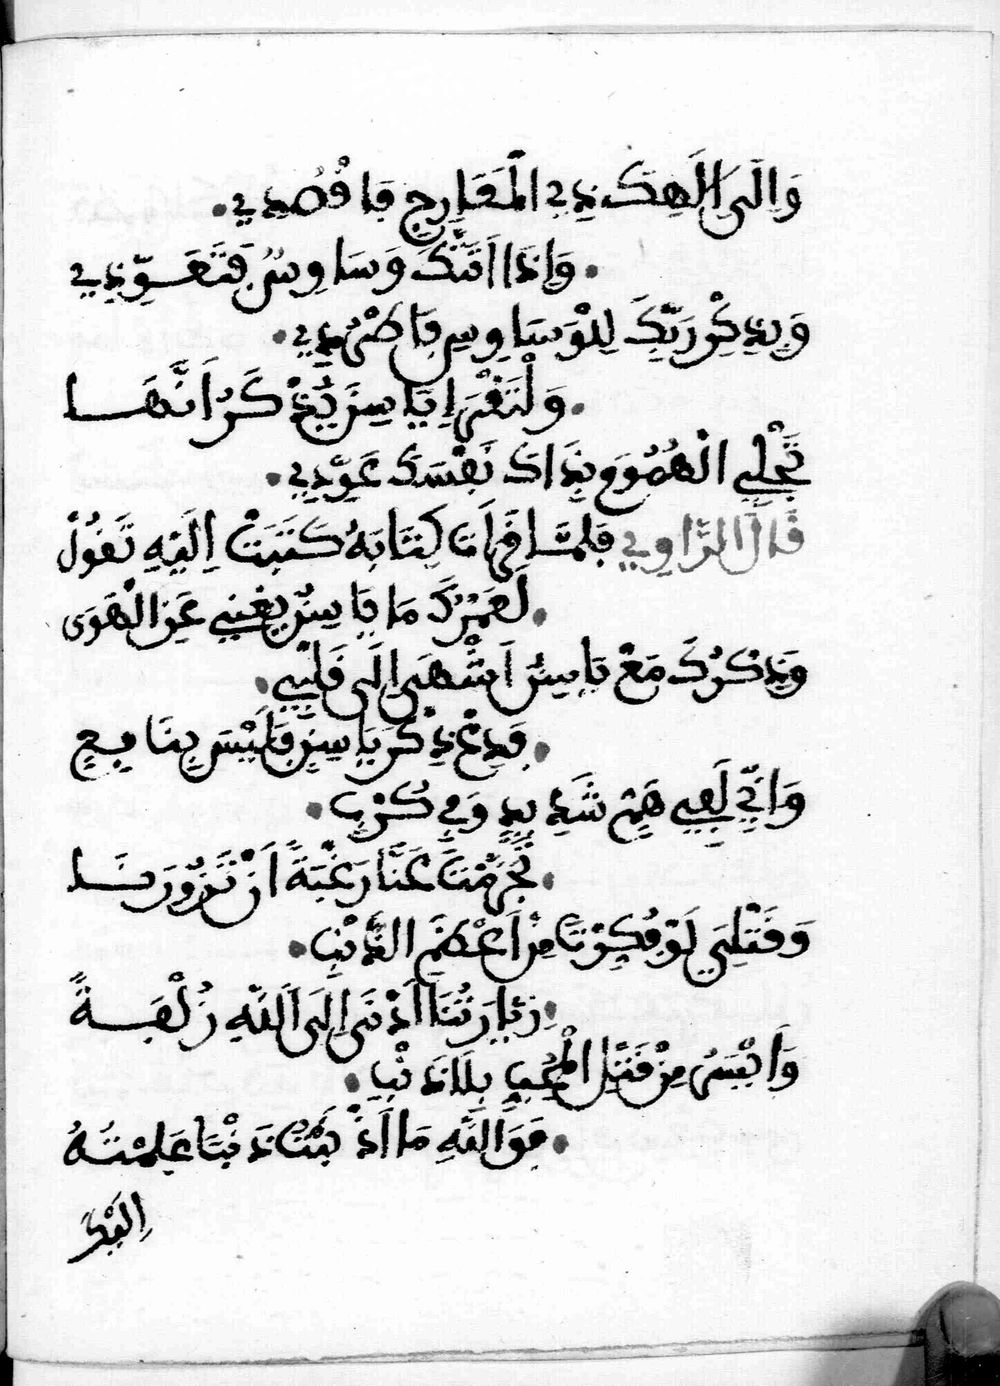 وَاِلَى اِلَهِكِ ذِي الْمَعَارِجِ فَاقْصُدِي.
.وَاِذَا اَتَتْكِ وَسَاوِسٌ فَتَعَوَّذِي
وَبِذِكْرِ رَبِّكِ لِلْوَسَاوِسِ فَاطْرُدِي.
.وَلْتَقْرَإِ يَاسِينَ يُذْكَرُ اَنَّهَا
تُجْلِي الْهُمُومَ وَبِذَاكَ نَفْسَكِ عَوِّدِي.
قَالَ الرَّاوِي فَلَمَّا قَرَاَتْ كِتَابَهُ كَتَبَتْ اِلَيْهِ تَقُولُ
.لَعَمْرُكَ مَا يَاسِينُ يُغْنِي عَنِ الْهَوَى
وَذِكْرُكَ مَعْ يَاسِينَ اَشْهَى اِلَى قَلْبِي.
.فَدَعْ ذِكْرَ يَاسِينٍ فَلَيْسَ بِنَافِعٍ
وَاِنِّي لَفِي هَمٍّ شَدِيدٍ وَفِي كُرْبِ.
.تَجَرَّمْتَ عَنَّا رَغْبَةً اَنْ تَزُورَنَا
وَقَتْلِي لَوْ فَكَّرْتَ مِنْ اَعْظَمِ الذَّنْبِ.
.زِيَارَتُنَا اَدْنَى اِلَى اللَّهِ زُلْفَةً
وَاَيْسَرُ مِنْ قَتْلِ الْمُحِبِّ بِلَا ذَنْبِ.
.فَوَاللَّهِ مَا اَذْنَبْتُ ذَنْبًا عَلِمْتُهُ
اِلَيْكَ